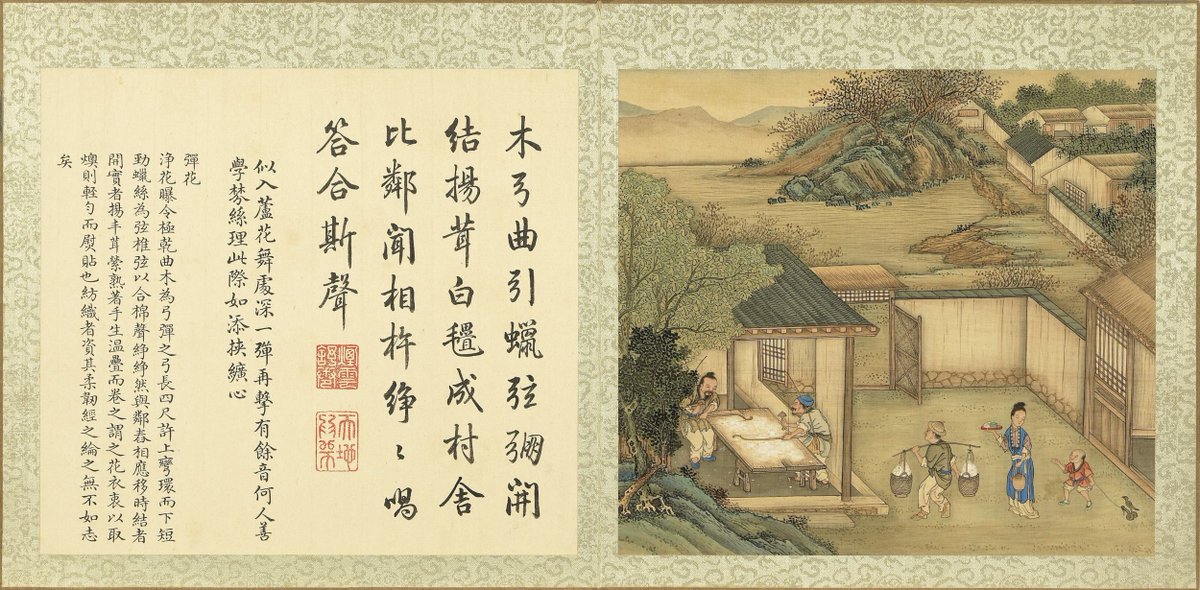 木弓曲引蠟弦弸開
結揚茸白氎成村舍
比鄰聞相杵錚〻唱
答合斯聲
似入蘆花舞處深一彈再擊有餘音何人善
學棼絲理此際如添挾纊心
彈花
淨花曝令極乾曲木為弓彈之弓長四尺許上彎環而下短
勁蠟絲為弦椎弦以合棉聲錚錚然與鄰舂相應移時結者
開實者揚丰茸縈熟著手生溫疊而卷之謂之花衣衷以取
燠則輕勻而熨貼也紡織者資其柔韌經之綸之無不如志
矣